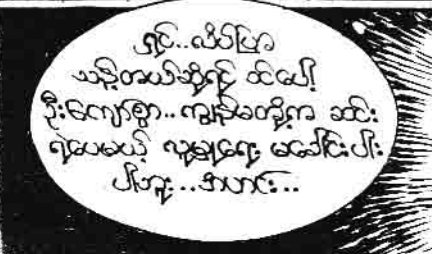 ရှင်..လိပ်ပြာ
သန့်တယ်ဆိုရင် ဝင်ပေါ့
ဦးကျော်စွာ..ကျွန်မတို့က ဆင်း
ရဲပေမယ့် လူမှုရေး မခေါင်းပါး
ပါဘူး...ဟင်း...